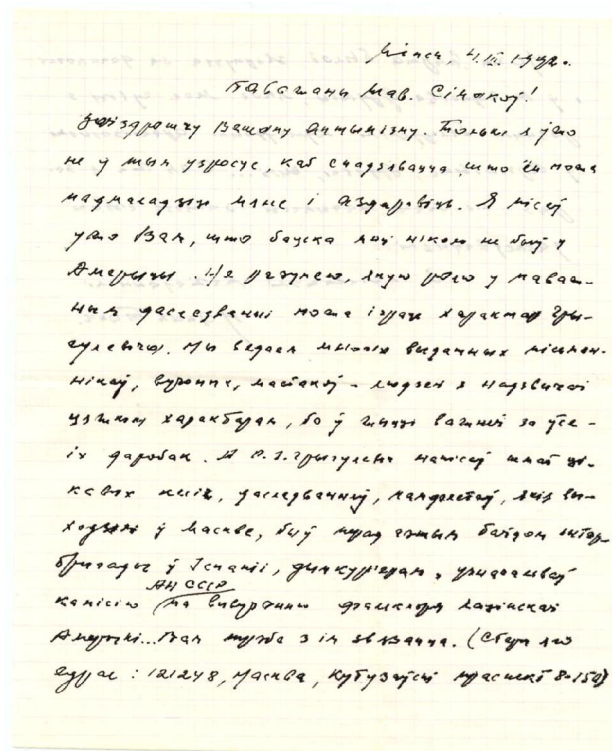 Мінск, 4.III.1992.
Паважаны Мав. Сінокоў!
Зайздрашчу Вашаму аптымізму. Толькі я ўжо
не ў тым узросце, каб спадзявацца, што ён можа
падмаладзіць мяне і аздаравіць. Я пісаў
ужо Вам, што бацька мой ніколі не быў у
Амерыцы. Не разумею, якую ролю у паваж-
ным даследванні можа іграць характар Гры-
гулевіча. Мы ведаем многіх выдатных пісьмен-
нікаў, вучоных, мастакоў - людзей з надзвычай
цяжкім характарам, бо ў жыцці важней за ўсё-
іх даробак. А Р.І.Грыгулевіч напісаў шмат ці-
кавых кніг, даследванняў, памфлетаў, якія вы-
ходзілі ў Маскве, быў перад гэтым байцом інтэр-
брыгады ў Іспаніі, дыпкур'ерам, узначальваў
камісію АН СССР па вывучэнню фальклору лацінскай
Амерыкі... Вам трэба з ім звязацца. (Стары яго
адрас: 121248, Масква, Кутузаўскі праспект 8-150)